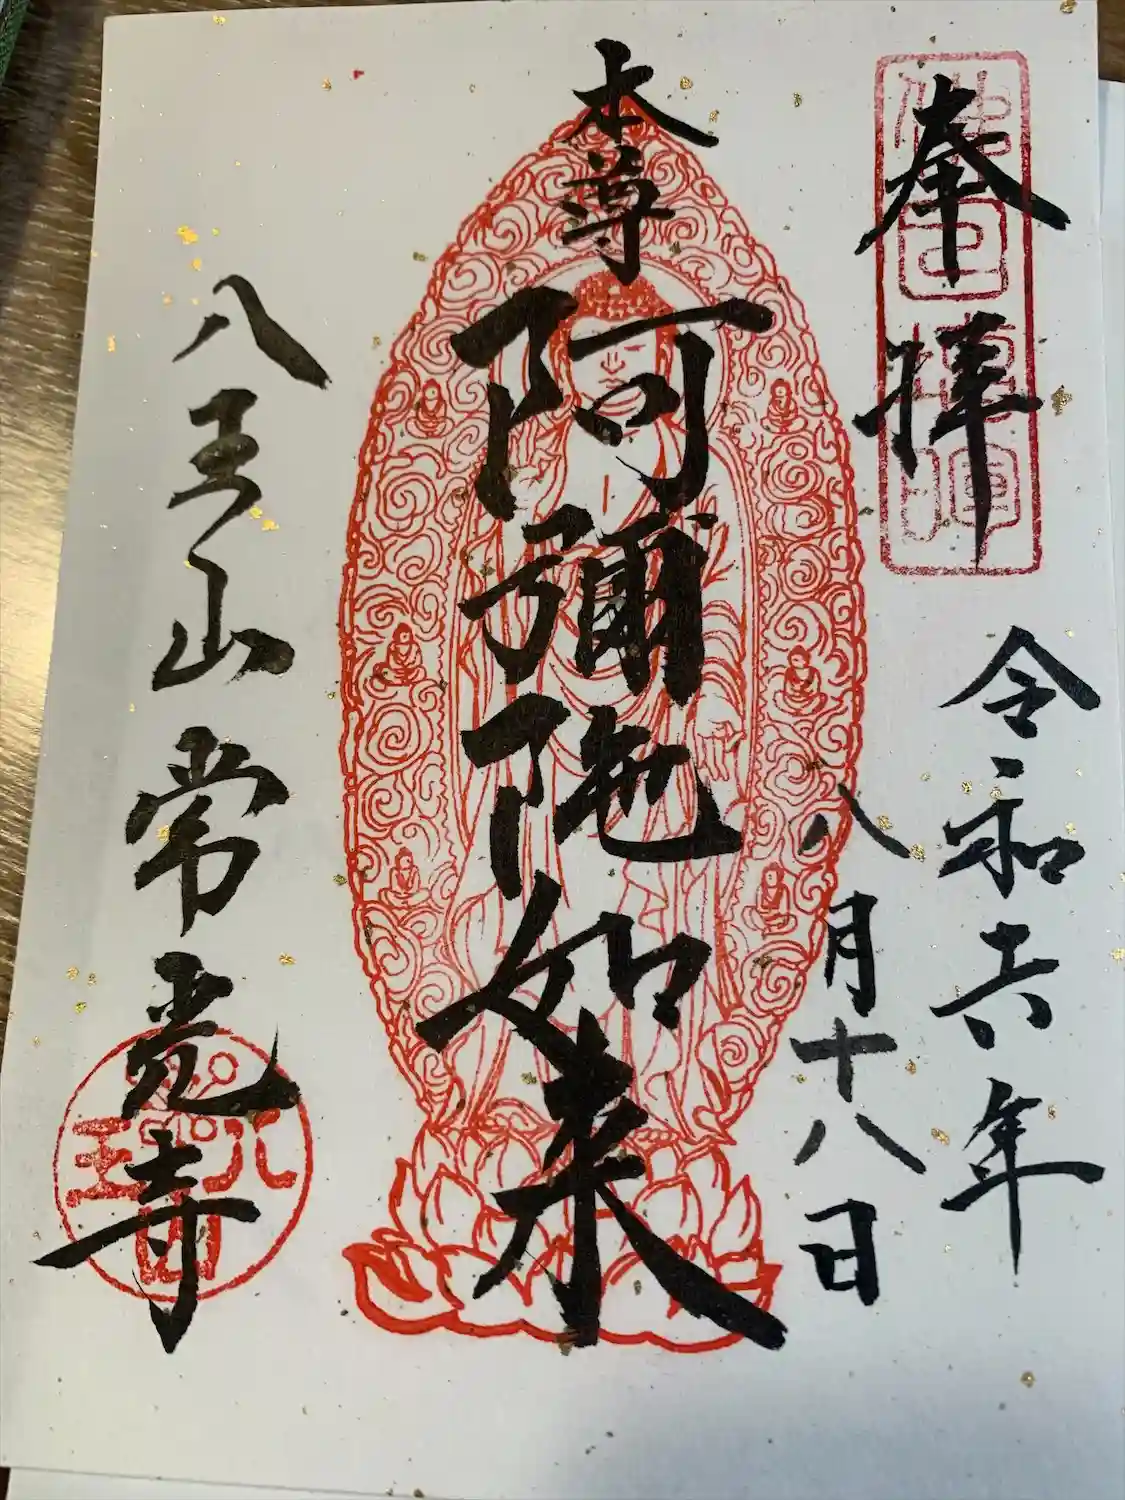 奉拝
令和六年
八月十八日
本尊
阿彌陀如来
八王山常光寺
八王山